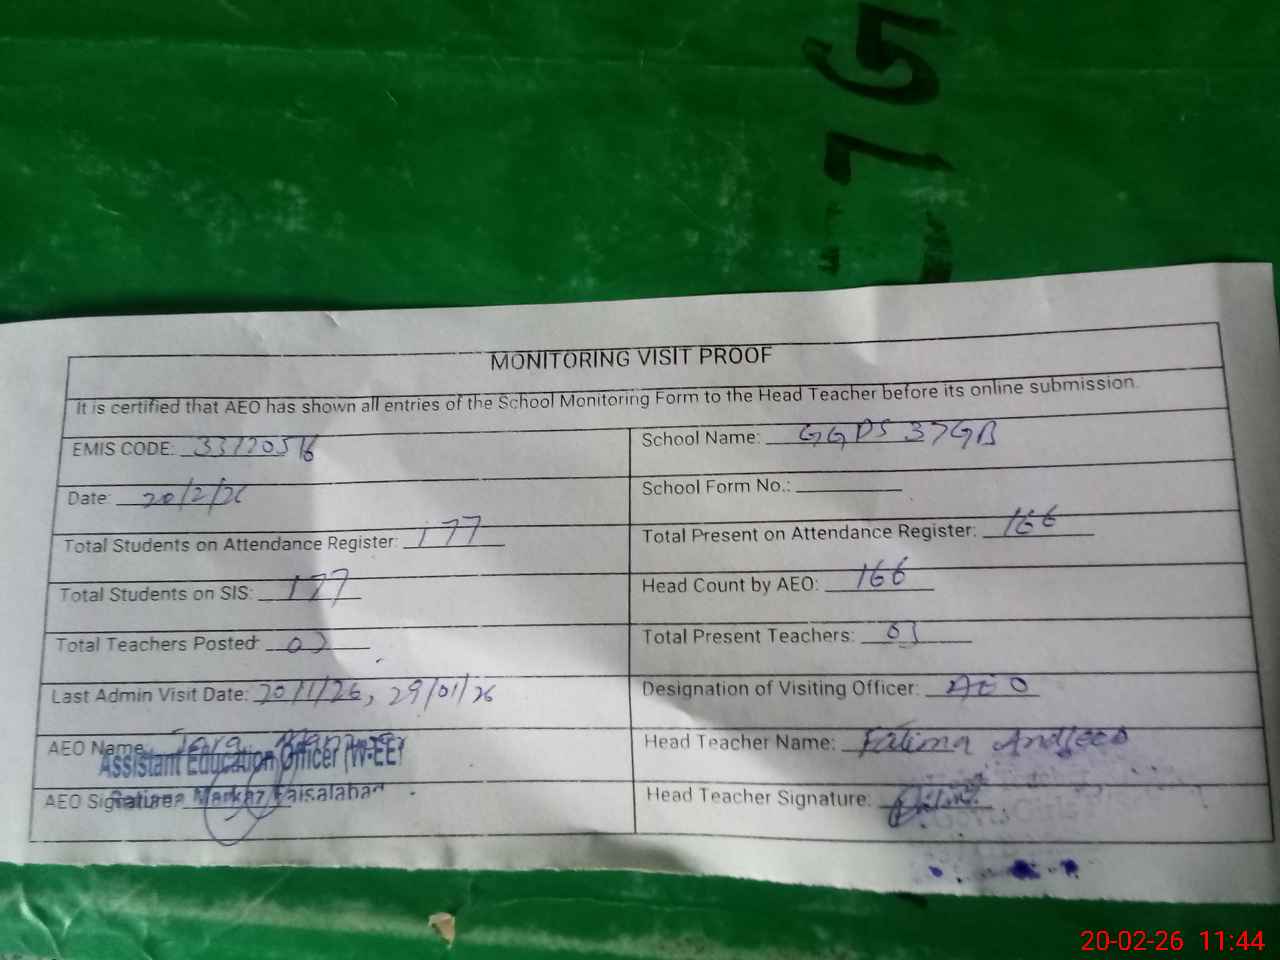 MONITORING VISIT PROOF
It is certified that AEO has shown all entries of the School Monitoring Form to the Head Teacher before its online submission.
EMIS CODE: 33120516 School Name: GGPS 37GB
Date: 20/2/26 School Form No.:
Total Students on Attendance Register: 177 Total Present on Attendance Register: 166
Total Students on SIS: 177 Head Count by AEO: 166
Total Teachers Posted: Total Present Teachers:
Last Admin Visit Date: 20/1/26, 29/01/26 Designation of Visiting Officer: AEO
AEO Name Head Teacher Name: Fatima
Assistant Education Officer (W-EE)
AEO Head Teacher Signature:
Markaz Faisalabad
Govt. Girls
20-02-26 11:44